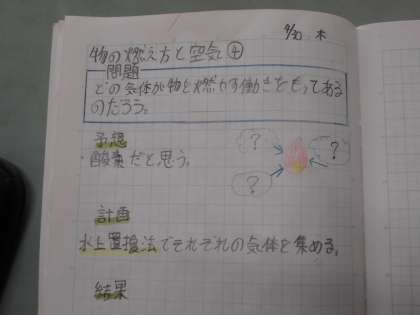 4/30 木
物の燃え方と空気④
問題
どの気体が物を燃やす働きをもってある
のだろう。
予想
・酸素だと思う。
?
?
?
計画
水上置換法でそれぞれの気体を集める。
結果